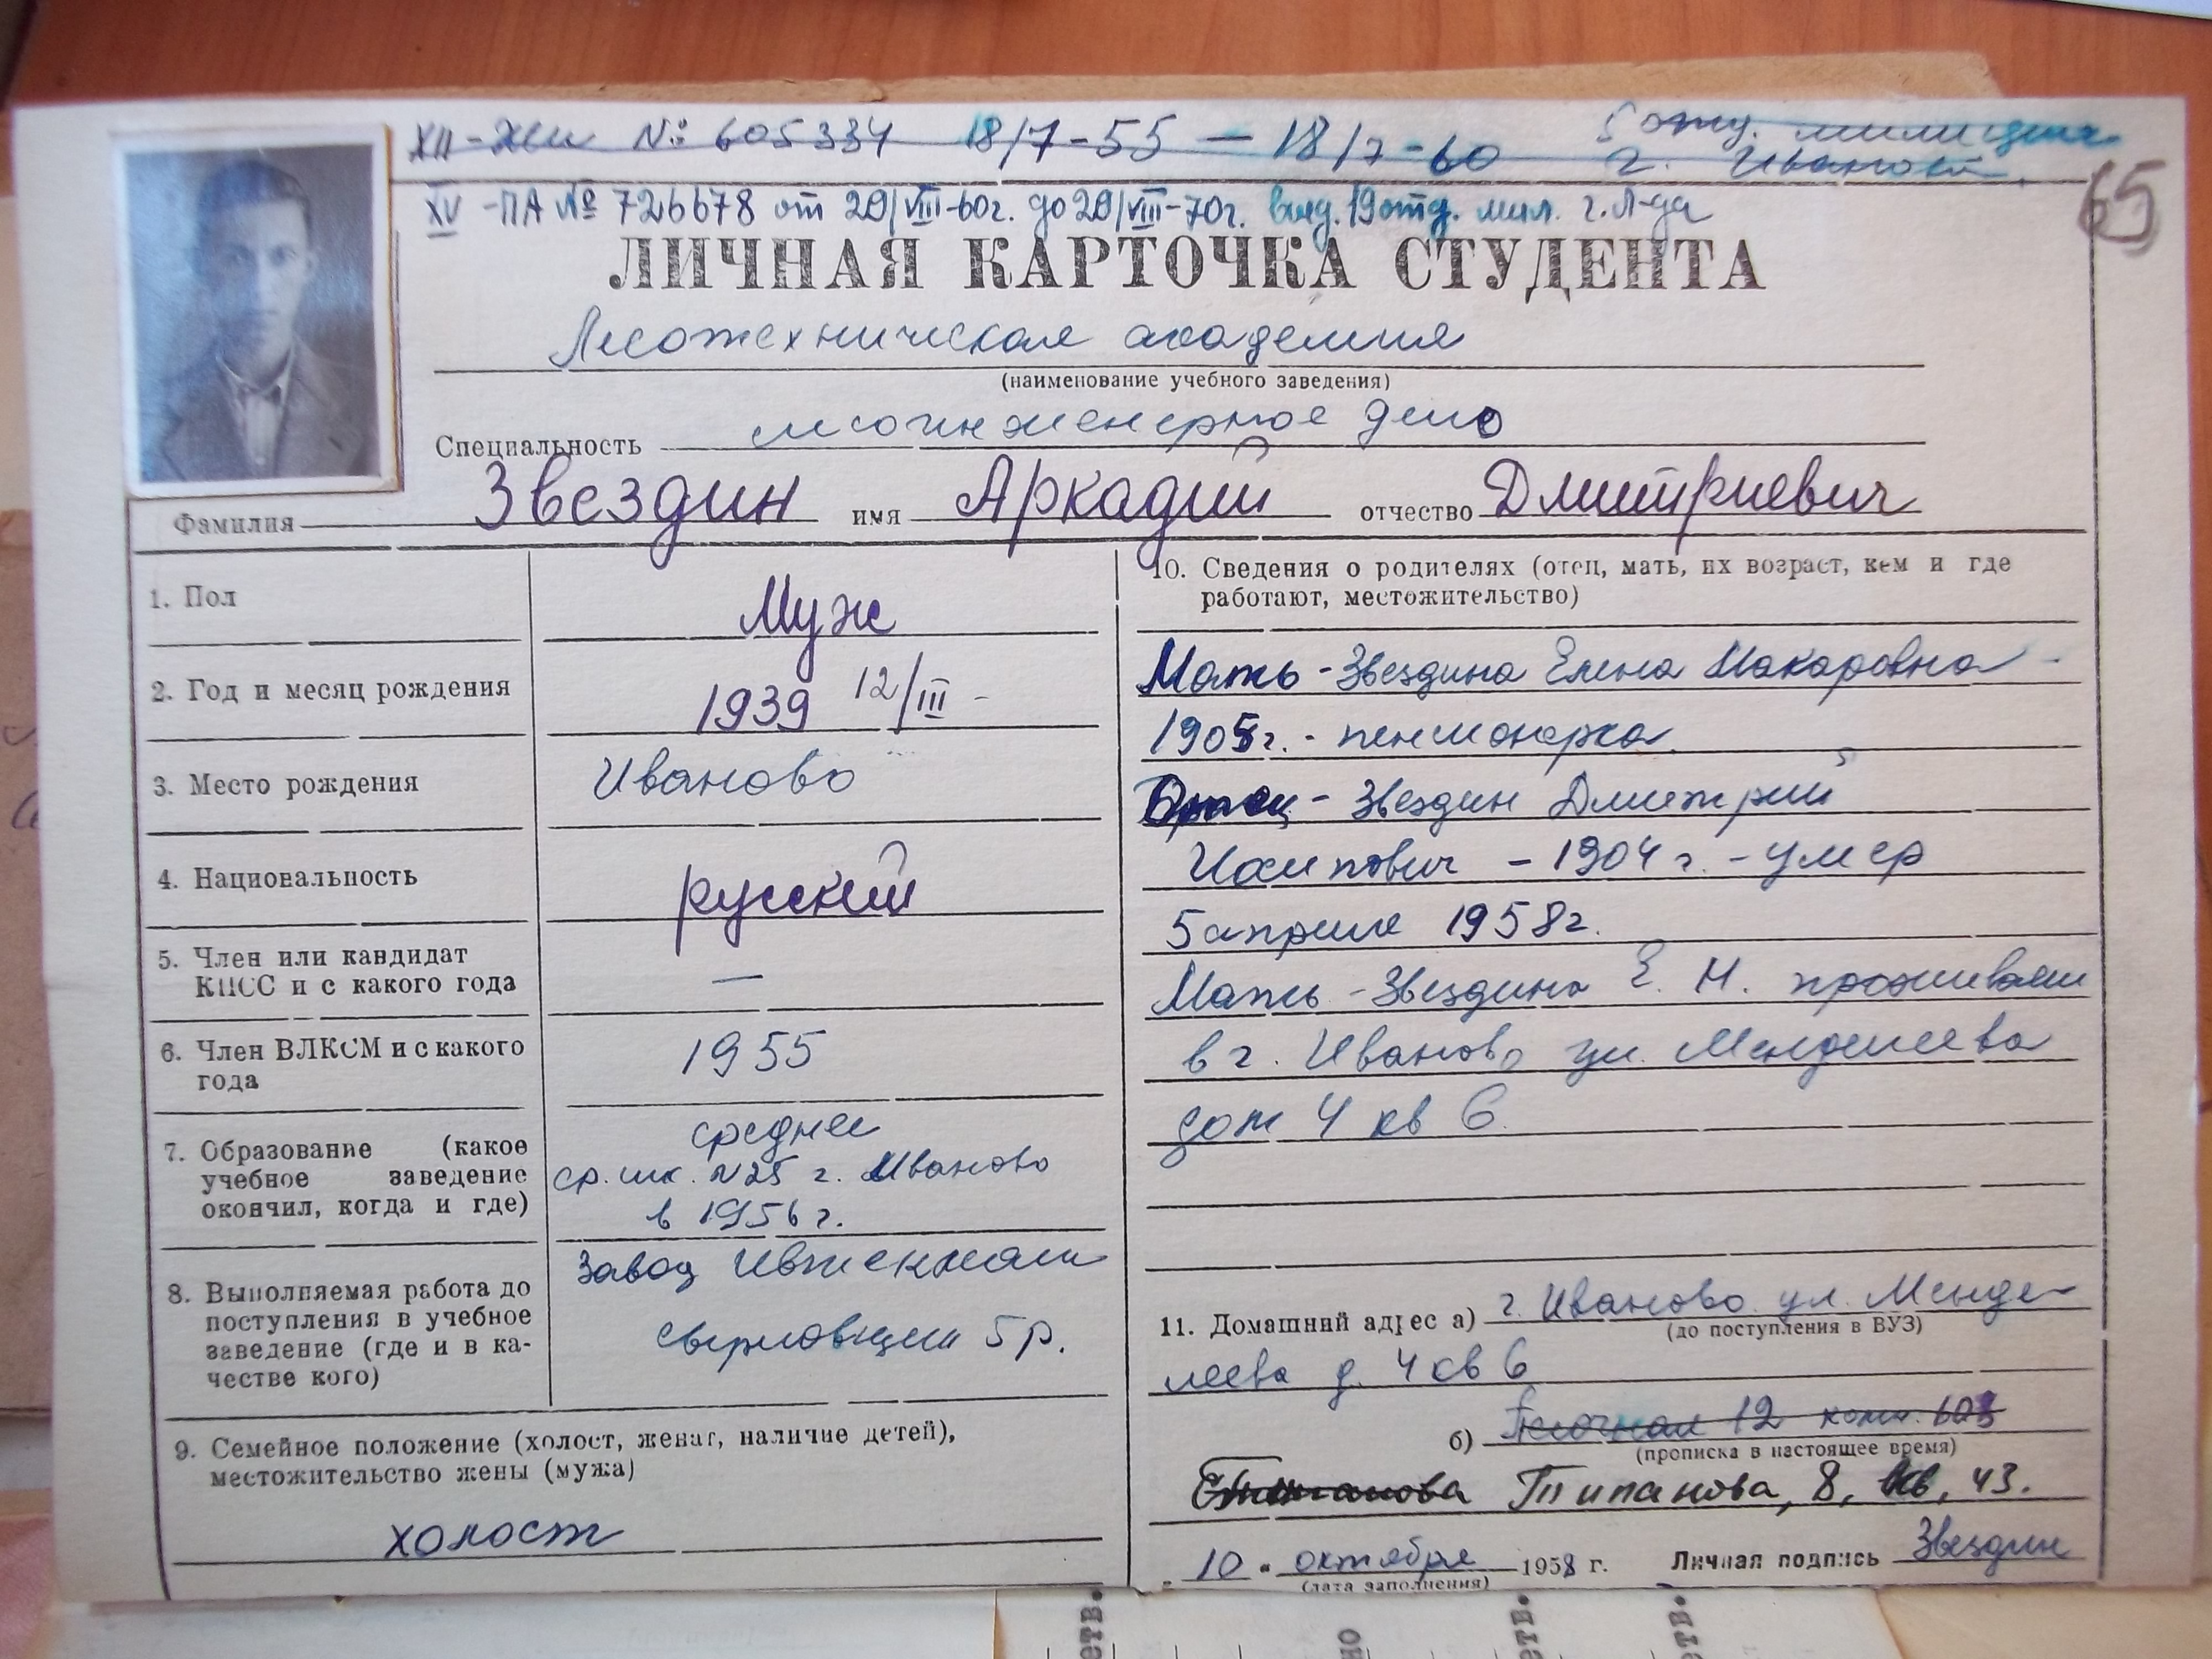 XII-ЖИ № 605334 18/7-55 — 18/7-60 5 отд. милиции
г. Иваново
65
XV-ПА № 726678 от 29/VIII-60г. до 29/VIII-70г. выд. 19 отд. мил. г. Л-да
ЛИЧНАЯ КАРТОЧКА СТУДЕНТА
Лесотехническая академия
(наименование учебного заведения)
Специальность лесоинженерное дело
Фамилия Звездин имя Аркадий отчество Дмитриевич
1. Пол
Муж
2. Год и месяц рождения
1939 12/III -
3. Место рождения
Иваново
4. Национальность
русский
5. Член или кандидат
КПСС и с какого года
—
6. Член ВЛКСМ и с какого
года
1955
7. Образование (какое
учебное заведение
окончил, когда и где)
среднее
ср. шк. N25 г. Иваново
в 1956 г.
8. Выполняемая работа до
поступления в учебное
заведение (где и в ка-
честве кого)
Завод
сверловщик 5 р.
9. Семейное положение (холост, женат, наличие детей),
местожительство жены (мужа)
холост
10. Сведения о родителях (отец, мать, их возраст, кем и где
работают, местожительство)
Мать - Звездина Елена Макаровна -
1905г. - пенсионерка
Отец - Звездин Дмитрий
Иосипович - 1904 г. - умер
5 апреля 1958г.
Мать - Звездина Е. М. проживает
в г. Иваново ул. Менделеева
дом 4 кв 6
11. Домашний адрес а) г. Иваново ул. Менде-
(до поступления в ВУЗ)
леева д. 4 кв 6
б) 12 комн. 603
(прописка в настоящее время)
Типанова, 8, кв. 43.
„ 10 " октября 1958 г. Личная подпись Звездин
(дата заполнения)